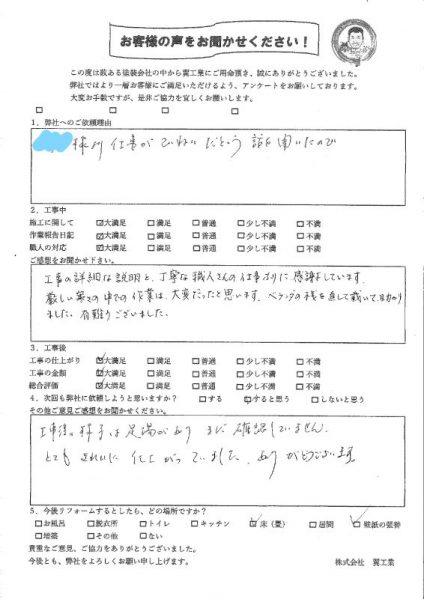 お客様の声をお聞かせください！
この度は数ある塗装会社の中から翼工業にご用命頂き、誠にありがとうございました。
弊社ではより一層お客様にご満足いただけるよう、アンケートをお願いしております。
大変お手数ですが、是非ご協力を宜しくお願いします。
□ □ □ □
1．弊社へのご依頼理由
様より 仕事がていねいだという 話を聞いたので
2．工事中
施工に関して ☑大満足 □満足 □普通 □少し不満 □不満
作業報告日記 ☑大満足 □満足 □普通 □少し不満 □不満
職人の対応 ☑大満足 □満足 □普通 □少し不満 □不満
ご感想をお聞かせ下さい。
工事の詳細な説明と、丁寧な職人さんの仕事ぶりに感謝しています。
厳しい寒さの中での作業は、大変だったと思います。ベランダの桟を直して戴いて、助かり
ました。有難うございました。
3．工事後
工事の仕上がり ☑大満足 □満足 □普通 □少し不満 □不満
工事の金額 ☑大満足 □満足 □普通 □少し不満 □不満
総合評価 ☑大満足 □満足 □普通 □少し不満 □不満
4．次回も弊社に依頼しようと思いますか？ □する ☑すると思う □しないと思う
その他ご意見ご感想をお聞かせください。
工事後の様子は足場があり まだ確認していません。
とても きれいに 仕上がっていました。ありがとうございます
5．今後リフォームするとしたら、どの場所ですか？
□お風呂 □脱衣所 □トイレ □キッチン ☑床（畳） □居間 ☑壁紙の張替
□増築 □その他 □ない
貴重なご意見、ご協力をありがとうございました。
今後とも、弊社をよろしくお願い申し上げます。 株式会社 翼工業